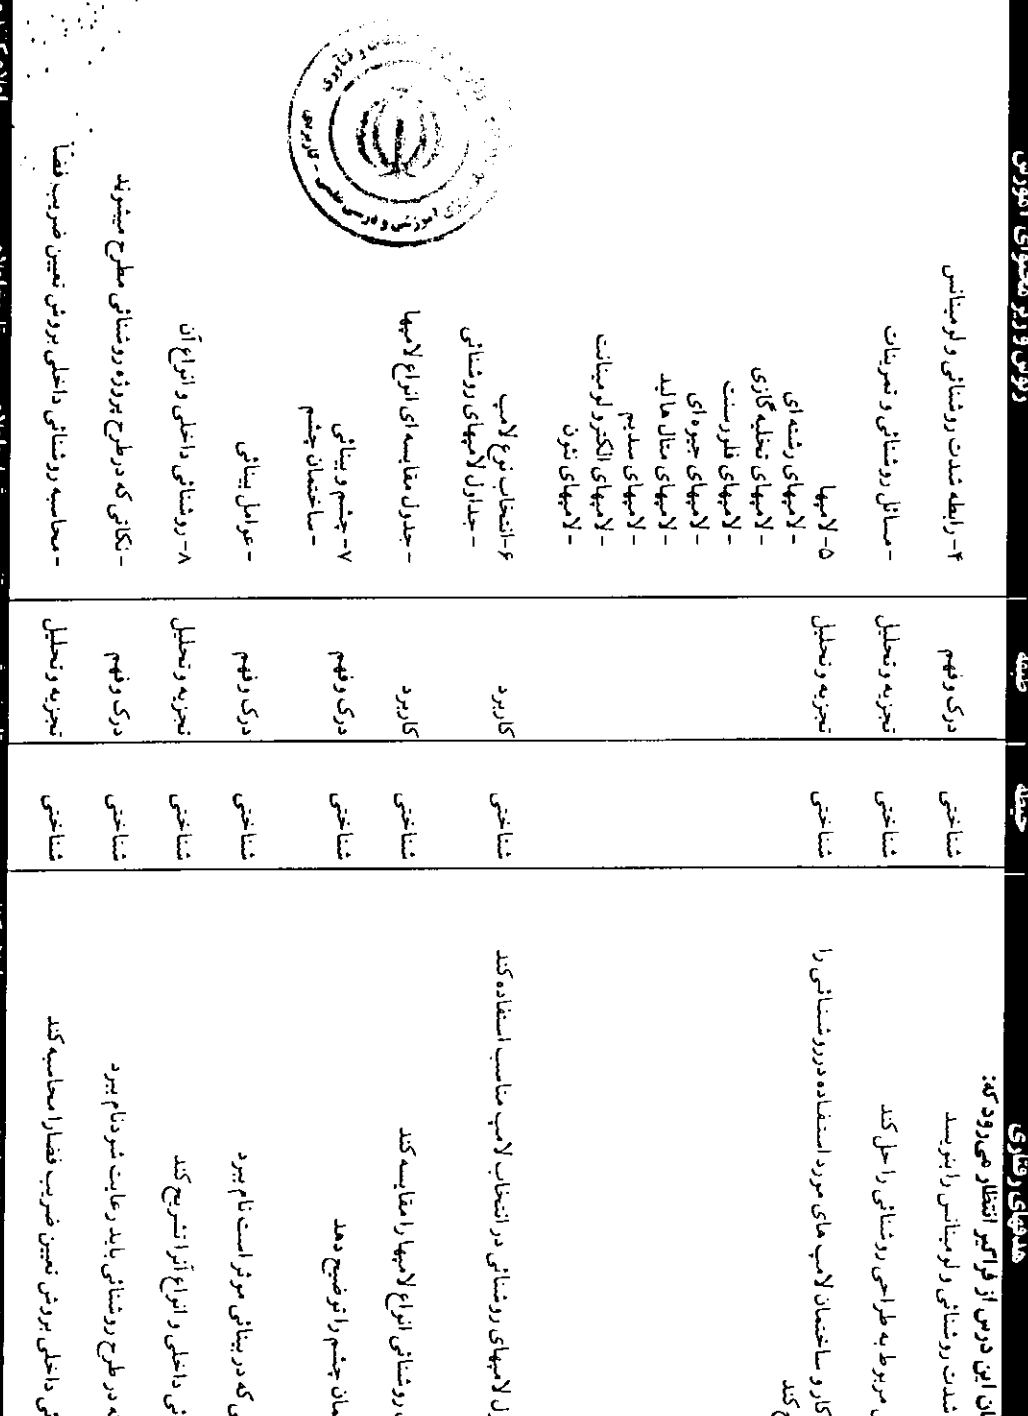 هدفهای رفتاری
حیطه
طبقه
رئوس و ریز محتوای آموزش
این درس از فراگیر انتظار می‌رود که:
شدت روشنائی و لومینانس را بنویسد
شناختی
درک و فهم
۴- رابطه شدت روشنائی و لومینانس
مربوط به طراحی روشنائی را حل کند
شناختی
تجزیه و تحلیل
- مسائل روشنائی و تمرینات
کار و ساختمان لامپ های مورد استفاده در روشنائی را
کند
شناختی
تجزیه و تحلیل
۵- لامپها
- لامپهای رشته ای
- لامپهای تخلیه گازی
- لامپهای فلورسنت
- لامپهای جیوه ای
- لامپهای متال هالید
- لامپهای سدیم
- لامپهای الکترو لومینانت
- لامپهای نئون
لامپهای روشنائی در انتخاب لامپ مناسب استفاده کند
شناختی
کاربرد
۶- انتخاب نوع لامپ
- جداول لامپهای روشنائی
روشنائی انواع لامپها را مقایسه کند
شناختی
کاربرد
- جدول مقایسه ای انواع لامپها
چشم را توضیح دهد
شناختی
درک و فهم
۷- چشم و بینائی
- ساختمان چشم
که در بینائی موثر است نام ببرد
شناختی
درک و فهم
- عوامل بینائی
داخلی و انواع آنرا تشریح کند
شناختی
تجزیه و تحلیل
۸- روشنائی داخلی و انواع آن
در طرح روشنائی باید رعایت شود نام ببرد
شناختی
درک و فهم
- نکاتی که در طرح پروژه روشنائی مطرح میشوند
داخلی بروش تعیین ضریب فضا را محاسبه کند
شناختی
تجزیه و تحلیل
- محاسبه روشنائی داخلی بروش تعیین ضریب فضا
و فنآوری
آموزشی و درسی علمی - کاربردی